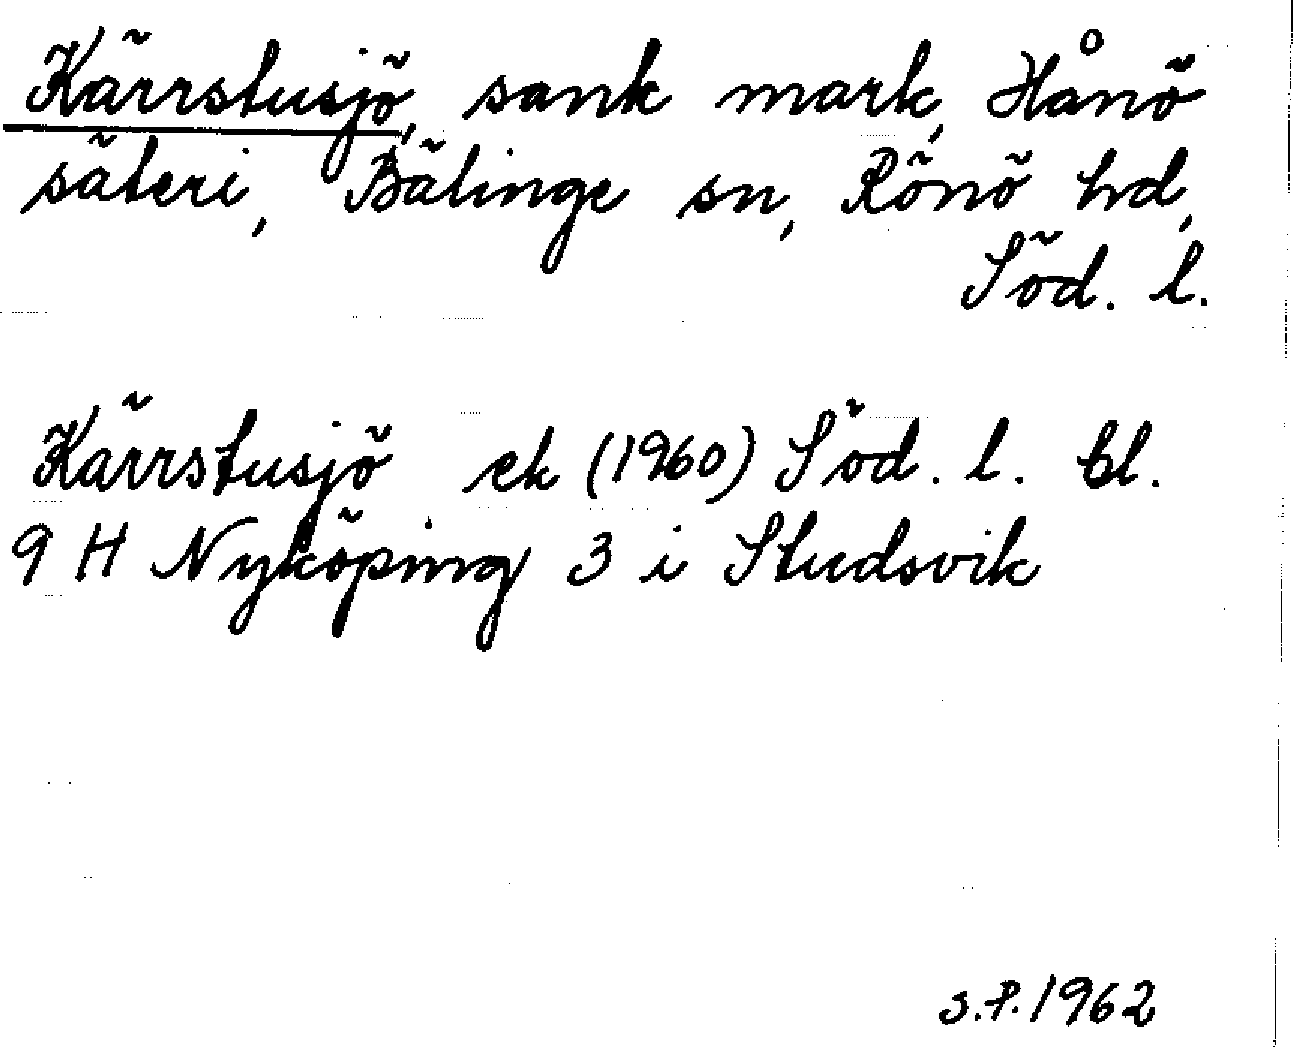 Kärrstusjö, sank mark, Hånö
säteri, Bälinge sn, Rönö hd,
Söd. l.
Kärrstusjö ek (1960) Söd. l. bl.
9 H Nyköping 3 i Studsvik
S.P. 1962